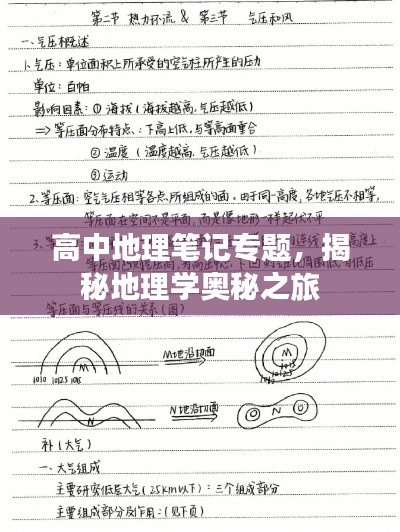 第二节 热力环流 & 第三节 气压和风
一、气压概述
1、气压：单位面积上所承受的空气柱所产生的压力
单位：百帕
影响因素：① 海拔（海拔越高，气压越低）
⇒ 等压面分布特点：下高上低，与等高面重合
② 温度（温度越高，气压越低）
③ 运动
2、等压面：空气气压相等各点所组成的面。由于同一高度，各地气压不相等，
等压面在空间不是平面，而是像地形一样起伏不平
高中地理笔记专题，揭
秘地理学奥秘之旅
等压面与等压线的关系（图）
M地沿切面
M
1010 1012.5 1015
M
N地沿切面
N
补（大气）
一、大气组成
主要研究低层大气（25km以下）：三个组成部分
主要组成部分及作用：（见下页）